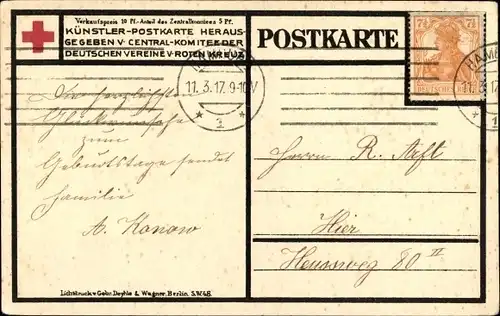 Verkaufspreis 10 Pf.-Anteil des Zentralkomitees 5 Pf.
KÜNSTLER-POSTKARTE HERAUS-
GEGEBEN V·CENTRAL-KOMITEE DER
DEUTSCHEN VEREINE V·ROTEN KREUZ
POSTKARTE
7½ 7½
DEUTSCHES REICH
11.3.17.9-10V
* 1 *
HAMB
11.3.17
Die herzlichsten
Glückwünsche
zum
Geburtstage sendet
Familie
A. Kanow
Herrn R.
Hier
Heussweg 80 II
Lichtdruck v. Gebr. Deyhle & Wagner, Berlin. S.W.48.